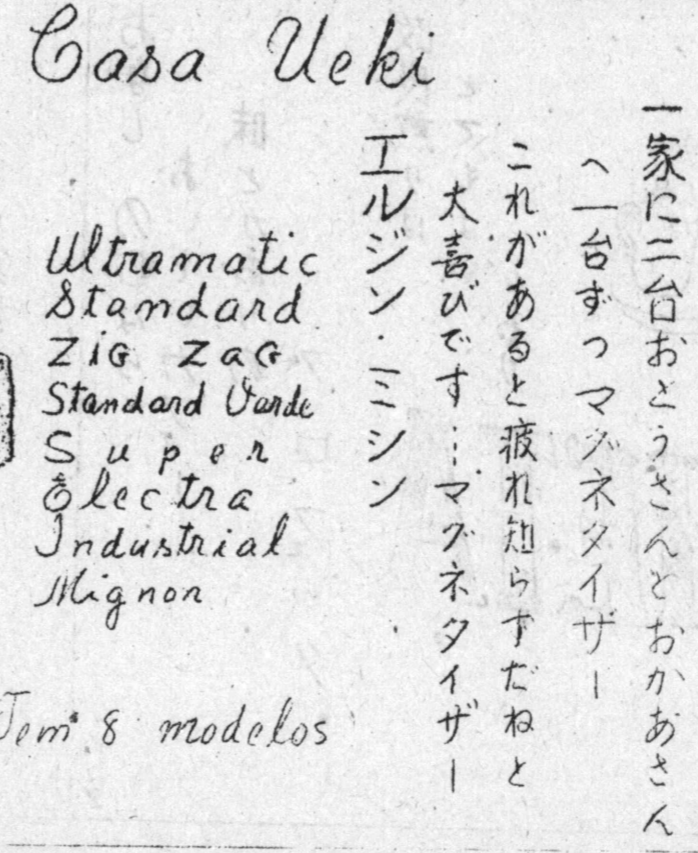 Casa Ueki
一家に二台おとうさんとおかあさん
へ一台ずつマグネタイザー
これがあると疲れ知らずだねと
大喜びです…マグネタイザー
エルジン・ミシン
Ultramatic
Standard
ZiG ZaG
Standard Varde
Super
Electra
Industrial
Mignon
Tem 8 modelos